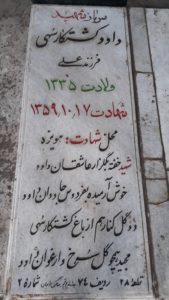 سرباز شهید
داود کشتکار سی
فرزند علی
ولادت ۱۳۳۵
شهادت ۱۳۵۹.۱۰.۱۷
محل شهادت: هویزه
شهید خفته بگلزار عاشقان داود
خوش آرمیده بفردوس جاودان داود
دو گل کنارهم از باغ کشتکار سی
محمد یحیی گل سرخ و ارغوان داود
قطعه ۲۸ ردیف ۷۴ شماره ۲